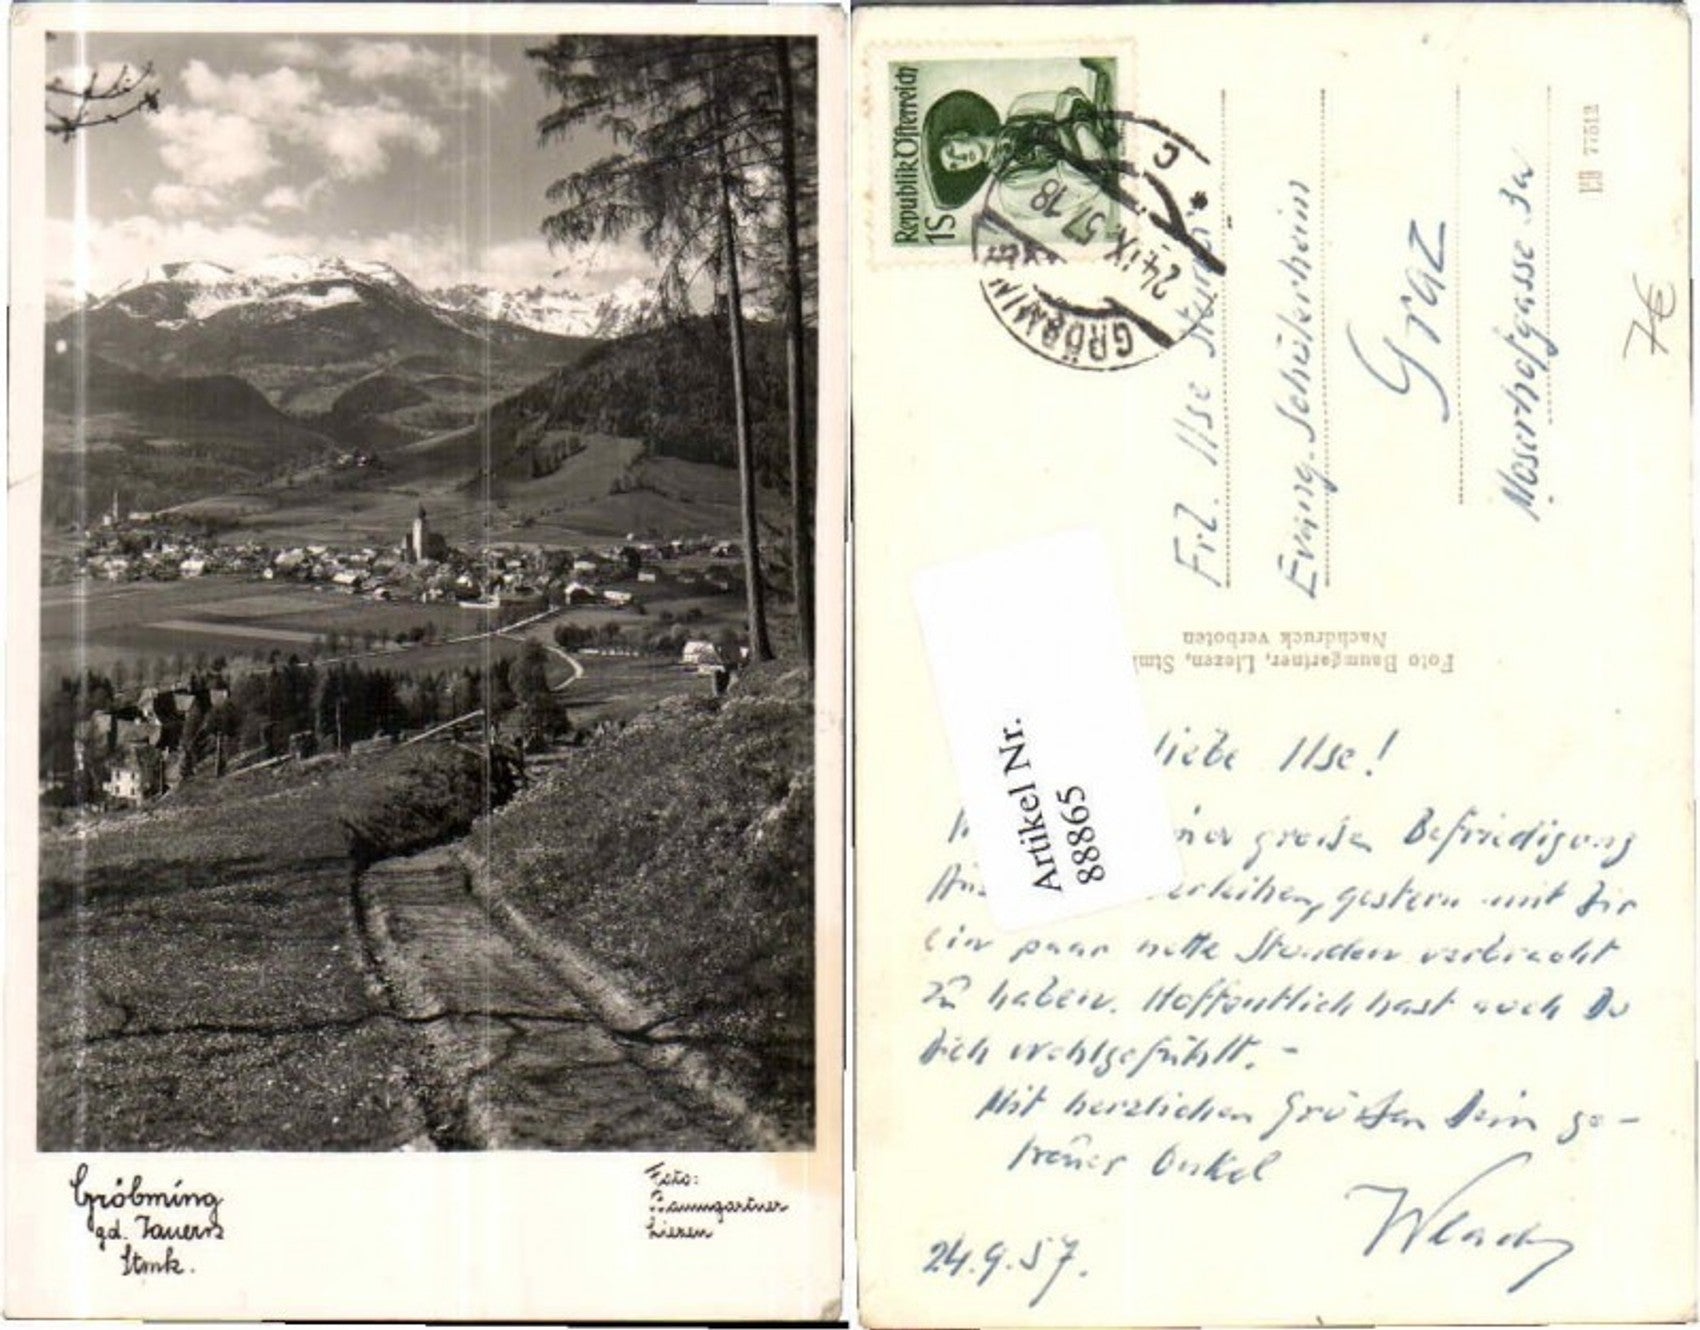 Gröbming
gd. Tauern
Stmk.
Foto:
Baumgartner
Liezen
Republik Österreich
1S
GRÖBMIN
24.IX.57 18
* C
Frl. Ilse
Evang. Schülerheim
Graz
Moserhofgasse 3a
LB 77512
7€
Foto Baumgartner, Liezen, Stm
Nachdruck verboten
Artikel Nr.
88865
liebe Ilse!
großen Befriedigung
gestern mit Dir
ein paar nette Stunden verbracht
zu haben. Hoffentlich hast auch Du
Dich wohlgefühlt. -
Mit herzlichen Grüßen Dein ge-
treuer Onkel
24.9.57.